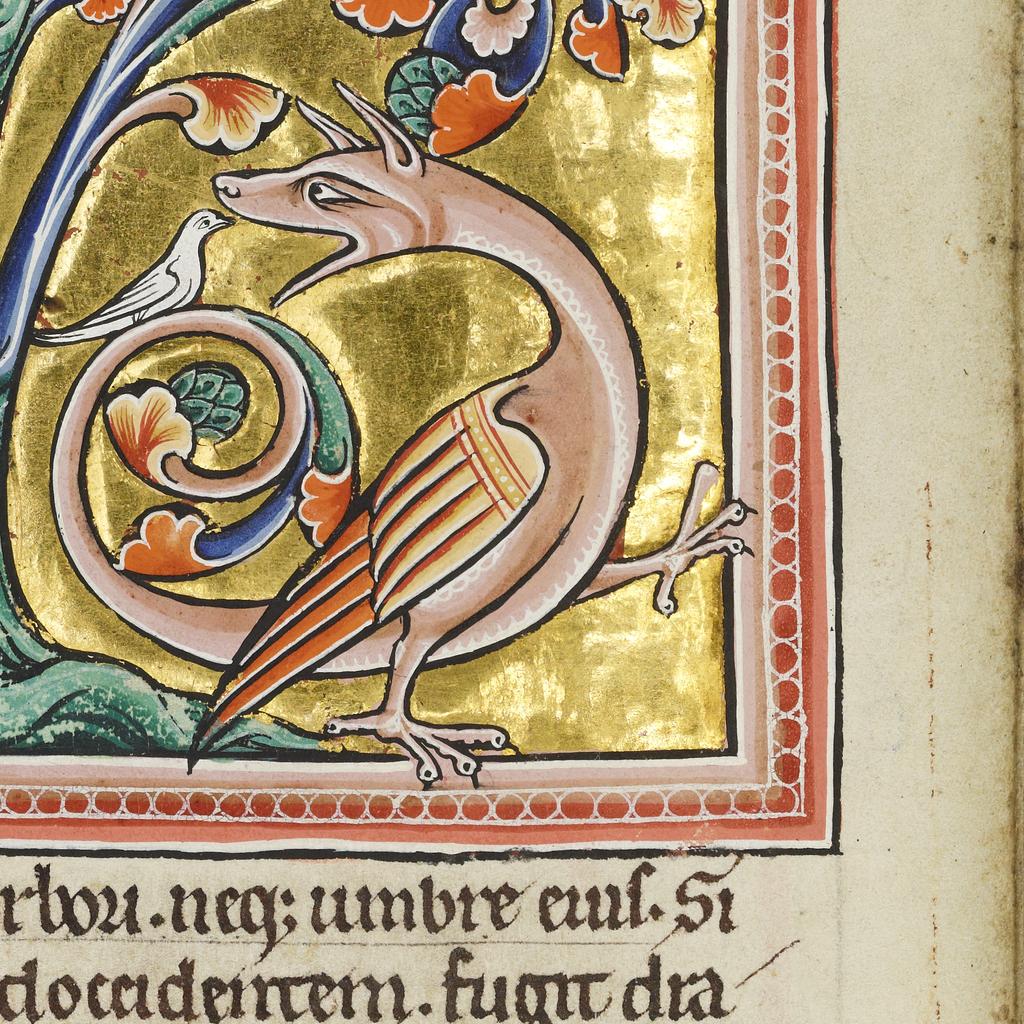 rbori. neq; umbre eius. Si
doccidentem. fugit dra